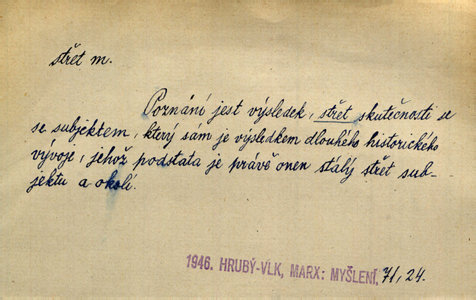 střet m.
Poznání jest výsledek, střet skutečnosti se
se subjektem, který sám je výsledkem dlouhého historického
vývoje, jehož podstata je právě onen stálý střet sub-
jektu a okolí.
1946. HRUBÝ-VLK, MARX: MYŠLENÍ, 71, 24.